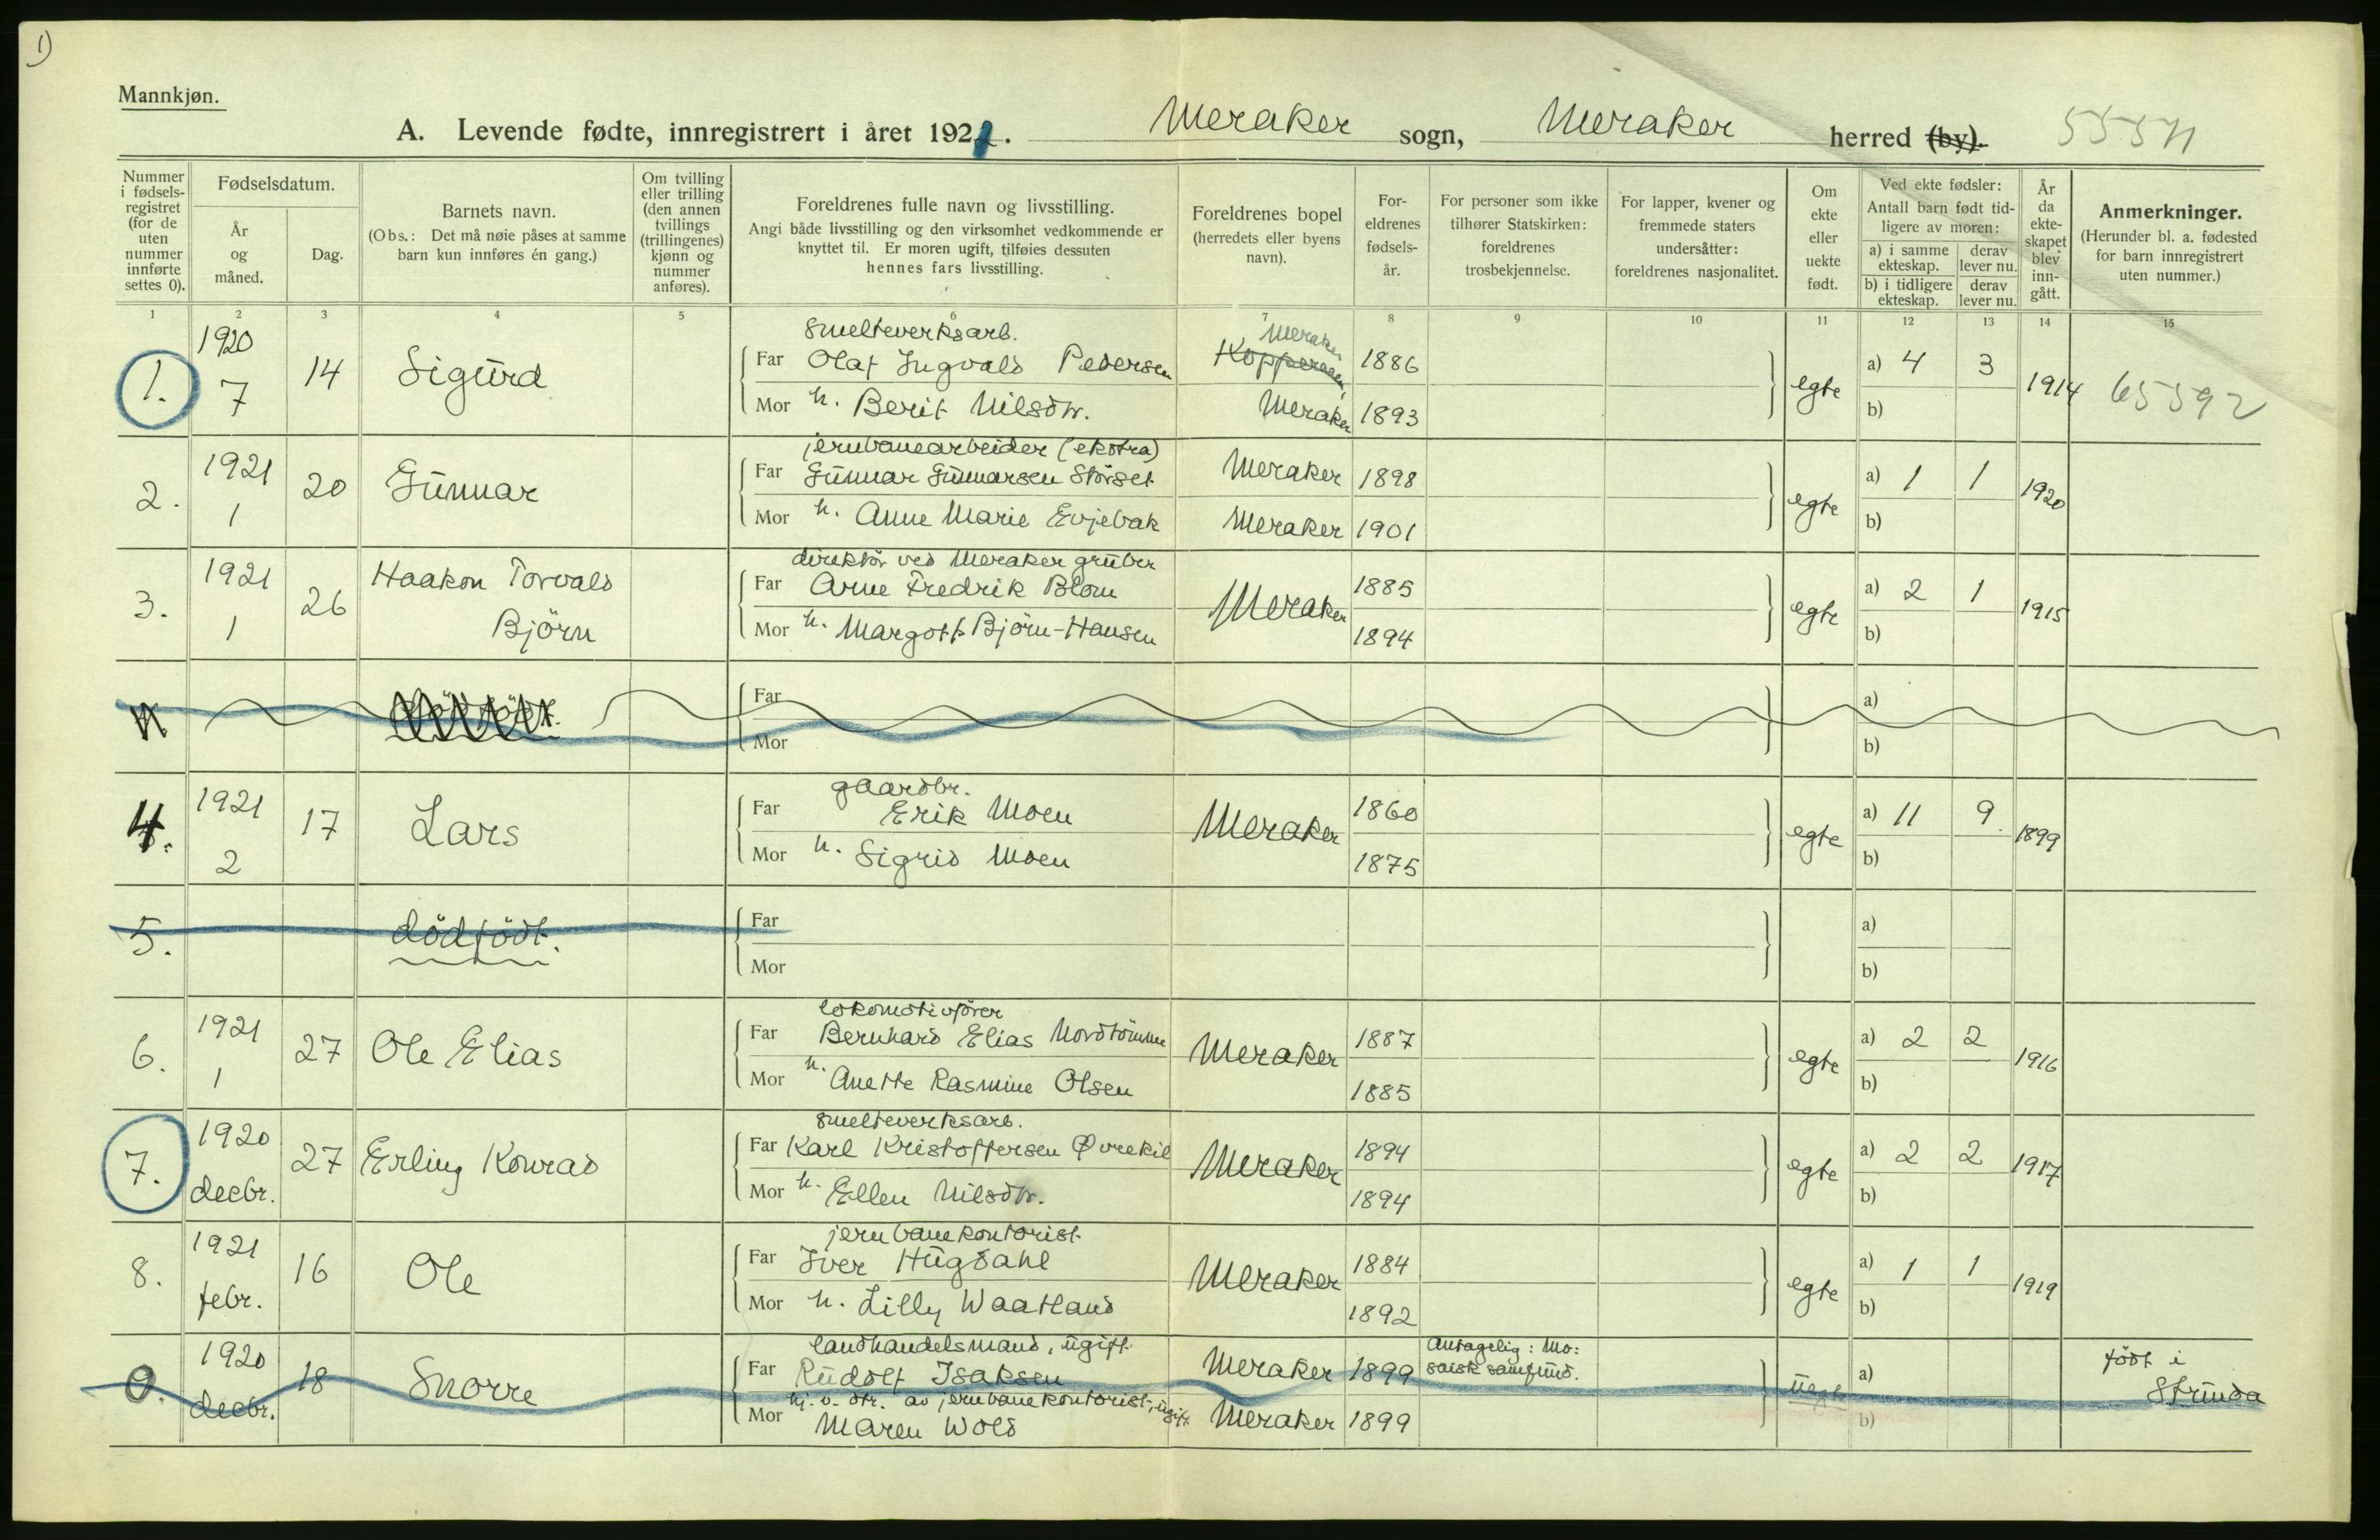 1)
Mannkjøn.
A. Levende fødte, innregistrert i året 1921. Meraker sogn, Meraker herred (by).
55571
Nummer i fødselsregistret (for de uten nummer innførte settes 0).
Fødselsdatum.
År og måned.
Dag.
Barnets navn.
(Obs.: Det må nøie påses at samme barn kun innføres én gang.)
Om tvilling eller trilling (den annen tvillings (trillingenes) kjønn og nummer anføres).
Foreldrenes fulle navn og livsstilling.
Angi både livsstilling og den virksomhet vedkommende er knyttet til. Er moren ugift, tilføies dessuten hennes fars livsstilling.
Foreldrenes bopel (herredets eller byens navn).
Foreldrenes fødselsår.
For personer som ikke tilhører Statskirken: foreldrenes trosbekjennelse.
For lapper, kvener og fremmede staters undersåtter: foreldrenes nasjonalitet.
Om ekte eller uekte født.
Ved ekte fødsler: Antall barn født tidligere av moren:
a) i samme ekteskap. derav lever nu.
b) i tidligere ekteskap. derav lever nu.
År da ekteskapet blev inngått.
Anmerkninger.
(Herunder bl. a. fødested for barn innregistrert uten nummer.)
1 2 3 4 5 6 7 8 9 10 11 12 13 14 15
1. 1920 7 14 Sigurd
smelteverksarb.
Far Olaf Ingvald Pedersen Kopperaaen, Meraker 1886
Mor h. Berit Nilsdtr. Meraker 1893
egte a) 4 3 b) 1914 65592
2. 1921 1 20 Gunnar
jernbanearbeider (ekstra)
Far Gunnar Gunnarsen Störset Meraker 1898
Mor h. Anne Marie Evjebak Meraker 1901
egte a) 1 1 b) 1920
3. 1921 1 26 Haakon Torvald Björn
direktör ved Meraker gruber
Far Arne Fredrik Blom Meraker 1885
Mor h. Margott Björn-Hansen 1894
egte a) 2 1 b) 1915
Far
Mor
a)
b)
4. 1921 2 17 Lars
gaardbr.
Far Erik Moen Meraker 1860
Mor h. Sigrid Moen 1875
egte a) 11 9. b) 1899
5. dödfödt.
Far
Mor
a)
b)
6. 1921 1 27 Ole Elias
lokomotivförer
Far Bernhard Elias Nordtömme Meraker 1887
Mor h. Anette Rasmine Olsen 1885
egte a) 2 2 b) 1916
7. 1920 decbr. 27 Erling Konrad
smelteverksarb.
Far Karl Kristoffersen Øvrekil Meraker 1894
Mor h. Ellen Nilsdtr. 1894
egte a) 2 2 b) 1917
8. 1921 febr. 16 Ole
jernbanekontorist
Far Iver Hugdahl Meraker 1884
Mor h. Lilly Waatland 1892
egte a) 1 1 b) 1919
0. 1920 decbr. 18 Snorre
landhandelsmand, ugift
Far Rudolf Isaksen Meraker 1899 Antagelig: Mosaisk samfund.
hj. v. dtr. av jernbanekontorist, ugift
Mor Maren Wold Meraker 1899
uegte a) b) födt i Strinda